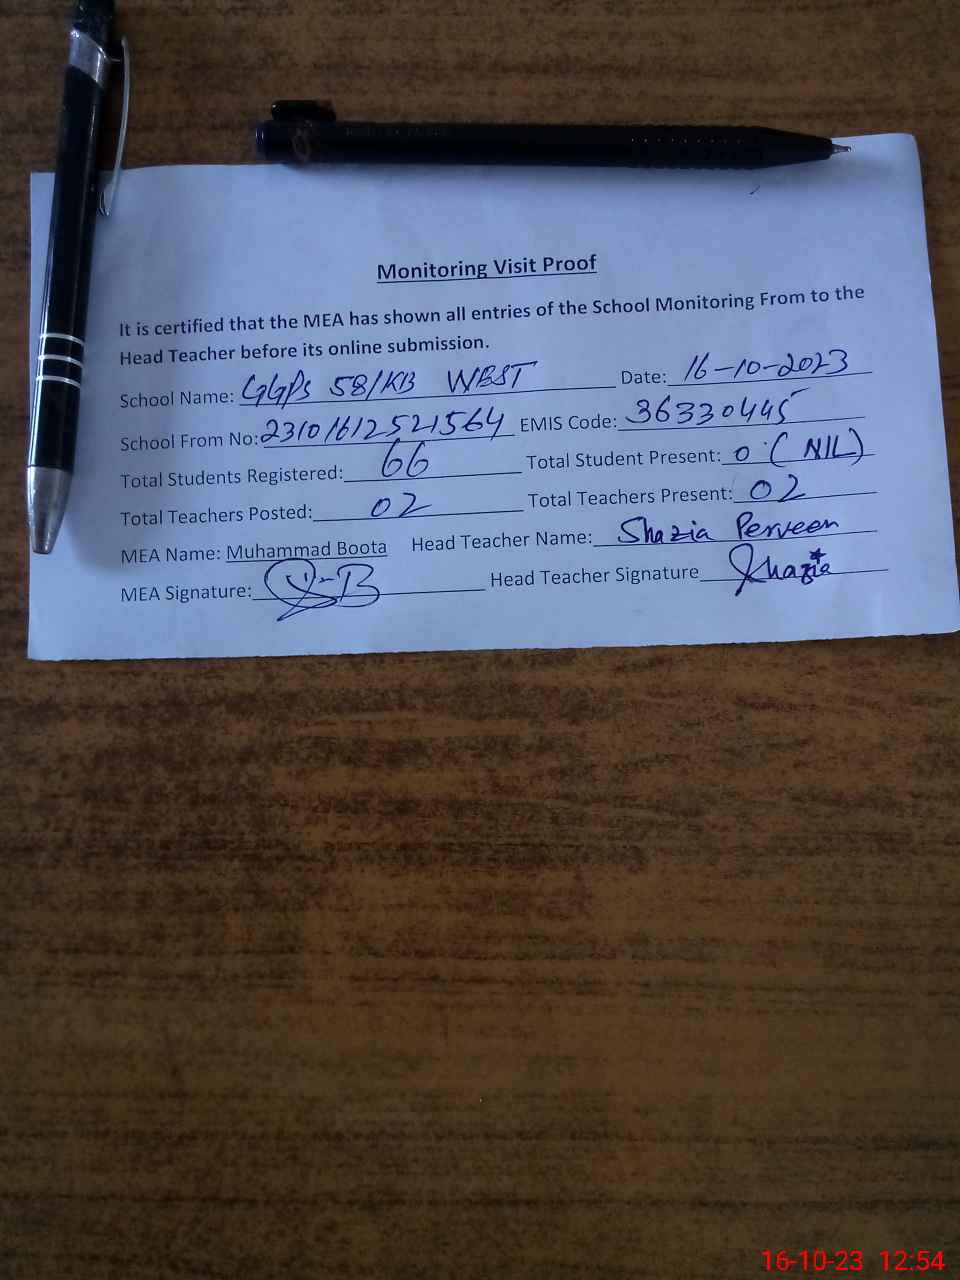 Monitoring Visit Proof
It is certified that the MEA has shown all entries of the School Monitoring From to the
Head Teacher before its online submission.
School Name: GGPS 58/KB WEST Date: 16-10-2023
School From No: 23101612521564 EMIS Code: 36330445
Total Students Registered: 66 Total Student Present: 0 (NIL)
Total Teachers Posted: 02 Total Teachers Present: 02
MEA Name: Muhammad Boota Head Teacher Name: Shazia Perveen
MEA Signature: Head Teacher Signature Shazia
16-10-23 12:54